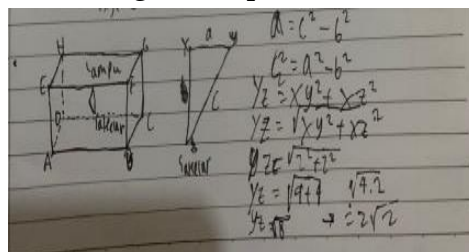 H G
E F
Lampu
D C
Saklar
A B
X a Y
b c
Saklar
a = c² - b²
c² = a² - b²
YZ² = XY² + XZ²
YZ = √XY² + XZ²
YZ = √2² + 2²
YZ = √4 + 4 √4.2
YZ = √8 → = 2√2